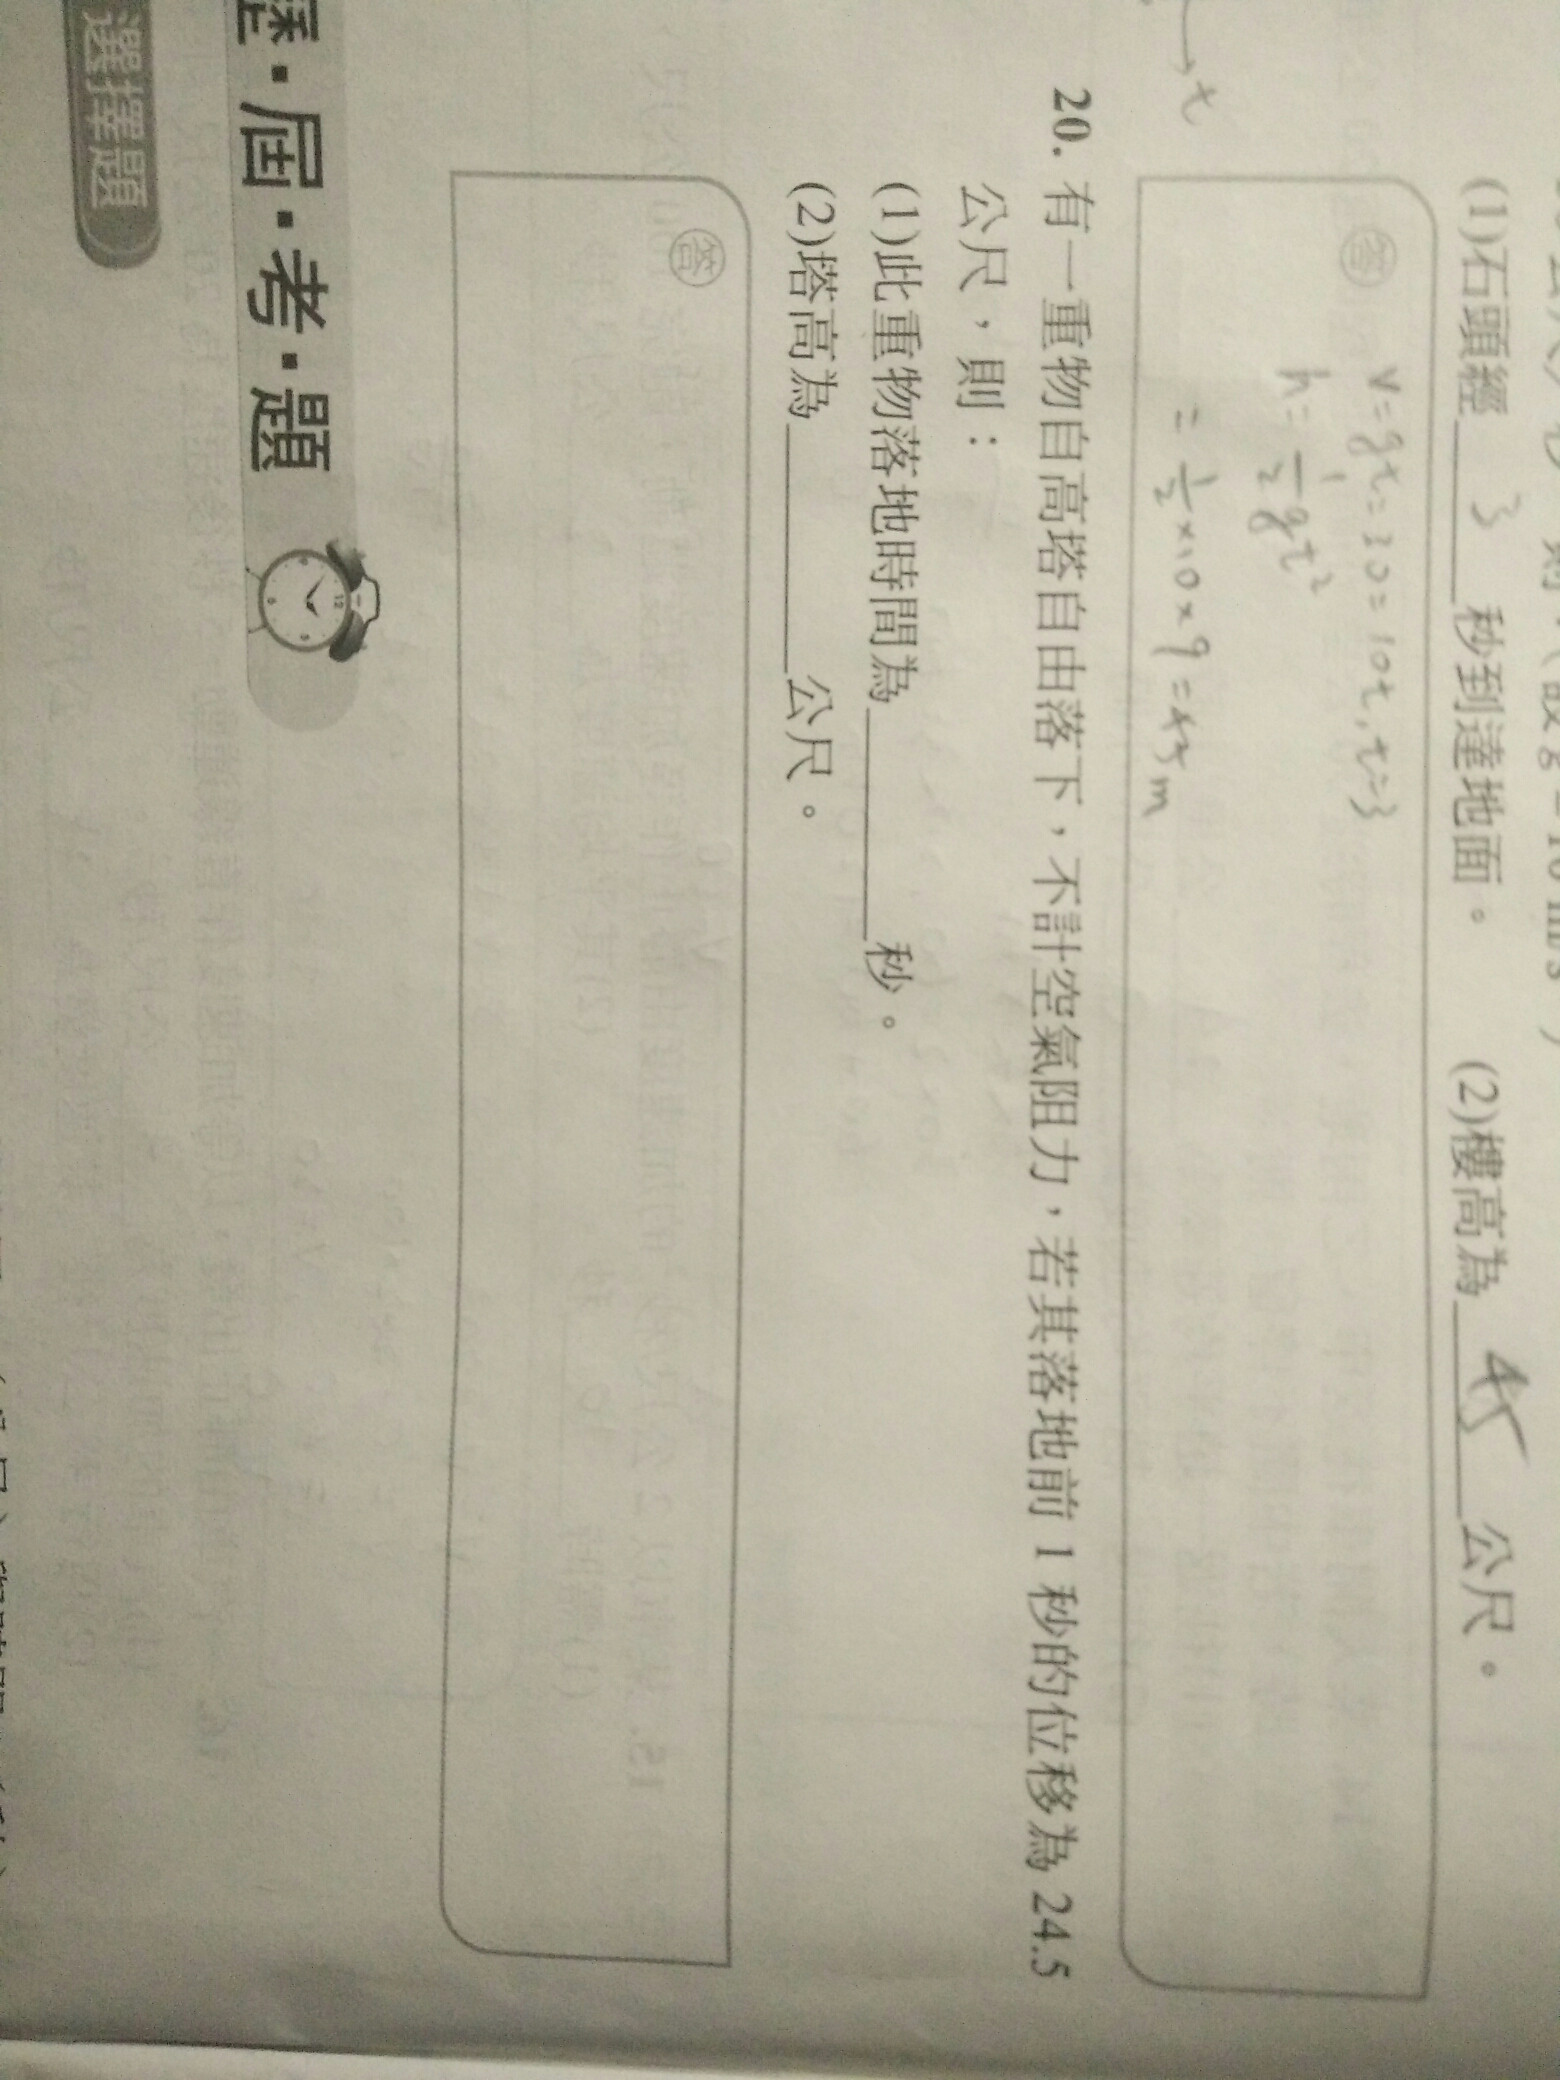 (1)石頭經 3 秒到達地面。 (2)樓高為 45 公尺。
答
v=gt=30=10t, t=3
h=1/2gt²
=1/2×10×9=45m
→t
20. 有一重物自高塔自由落下,不計空氣阻力,若其落地前 1 秒的位移為 24.5
公尺,則:
(1)此重物落地時間為 秒。
(2)塔高為 公尺。
答
歷·屆·考·題
選擇題